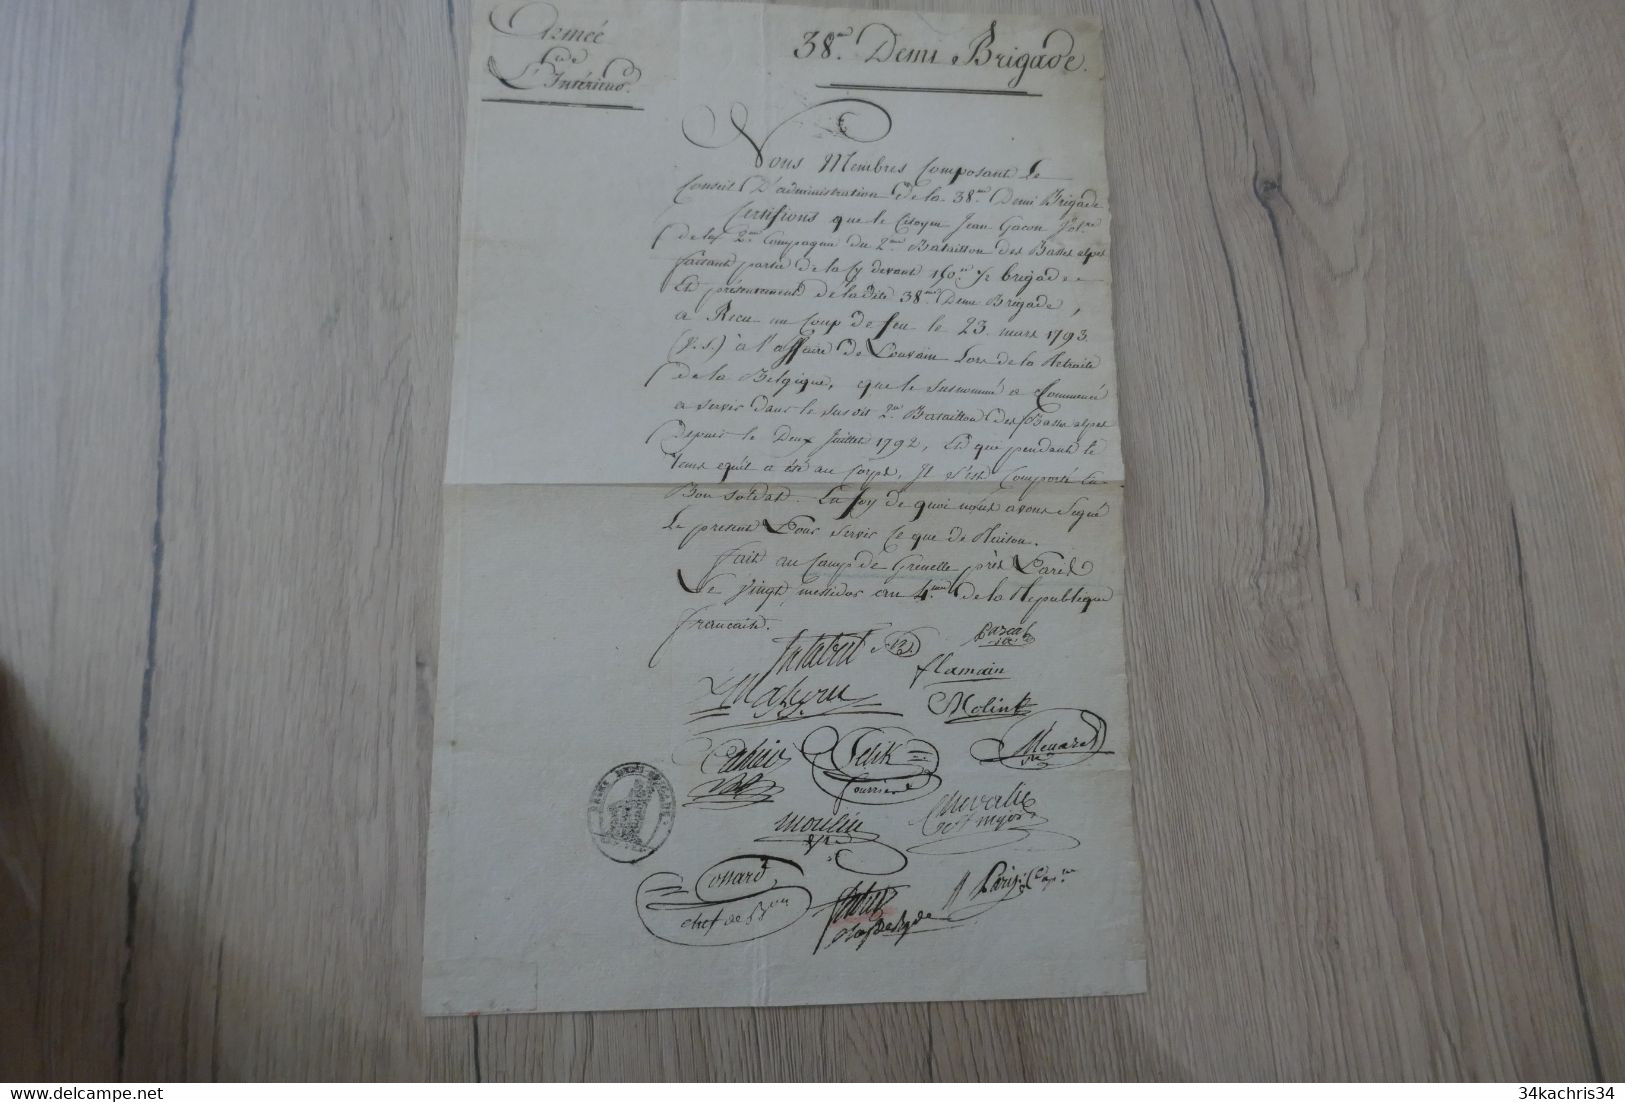 Armée
de
L'Intérieur.
38.me Demi Brigade.
Nous Membres Composant le
Conseil D'administration de la 38.me Demi Brigade
Certifions que le Citoyen Jean Gacon Vol.re
de la 2.me Compagnie du 2.me Bataillon des Basses alpes
faisant partie de la cy devant 190.me ½ brigade
Et présentement de la dite 38.me Demi Brigade,
a Recu un Coup de feu le 23 mars 1793
(V.S.) à l'affaire de Louvain Lors de la Retraite
de la Belgique, que le susnommé a Commencé
a servir dans le susdit 2.me Bataillon des Basses alpes
Depuis le Deux Juillet 1792, Et que pendant le
tems qu'il a été au Corps, Il s'est Comporté En
Bon soldat. En foy de quoi nous avons Signé
Le présent Pour servir Ce que de Raison.
fait au Camp de Grenelle près Paris
Le Vingt messidor an 4.me de la République
francaise.
Pascal
flamain
Molink
Menard
fourrier
moulin
Chevalier
Cossard
chef de B.on
Parizi Cap.ne
34kachris34